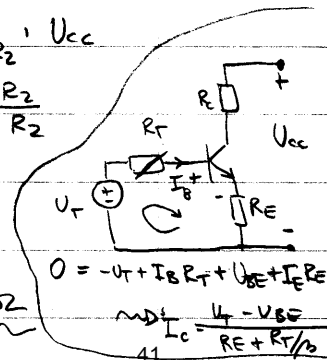 R2 · Ucc
R2
R2
Rc
+
Ucc
RT
IB +
UT
±
- RE
-
0 = -UT + IB RT + UBE + IE RE
Ic = UT - UBE / RE + RT/β
41